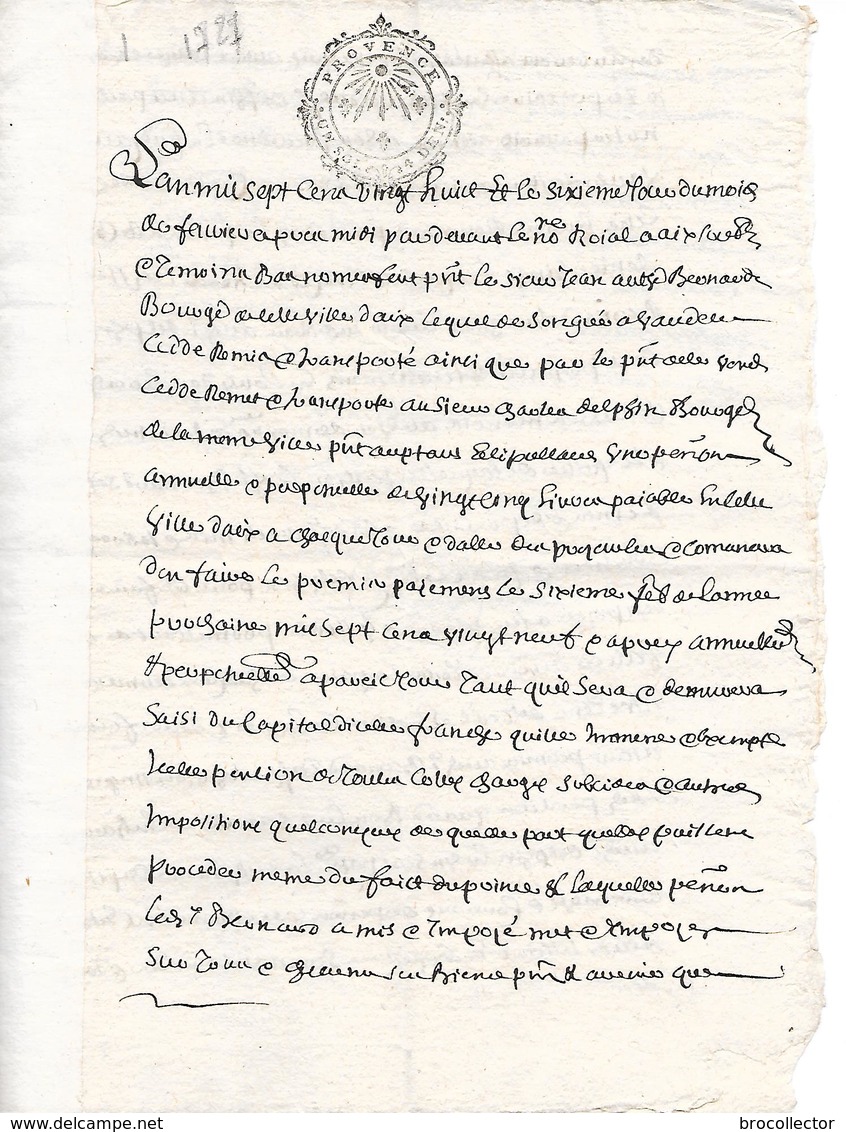 1 1728
PROVENCE
UN SOL 4 DEN.
L'an mil sept cens vingt huict et le sixieme jour du mois
de fevrier apres midi par devant le no.re Roial a aix soubz.e
e temoins bas nomes feut pnt le sieur Jean
Bourge de lad ville d'aix lequel de son gré a vandeu
ceddé Remis e transporté ainsi que par le pnt acte vend
cedde Remet e transporte au sieur charles delphin Bourge
de la meme ville pnt acceptant stipullant une pention
annuelle e perpetuelle de vingt cinq livres paiable en lad
ville d'aix a chasque jour e datte des presentes e comansera
d'en faire le premier paiement le sixieme feb. de l'année
prochaine mil sept cens vingt neuf e apres annuellem
& perpetuellem a pareil jour tant qu'il sera e demurera
saisi du capital d'icelle franche quitte immune e exempte
lad pention de toutes cottes charges subcides e autres
impositions quelconques de quelle part quelles puissent
proceder meme du faict du prince & laquelle pention
led s.r Bernard a mis e imposé met e impose
sur tous e chacuns ses Biens pnts & avenir que
www.delcampe.net
brocollector